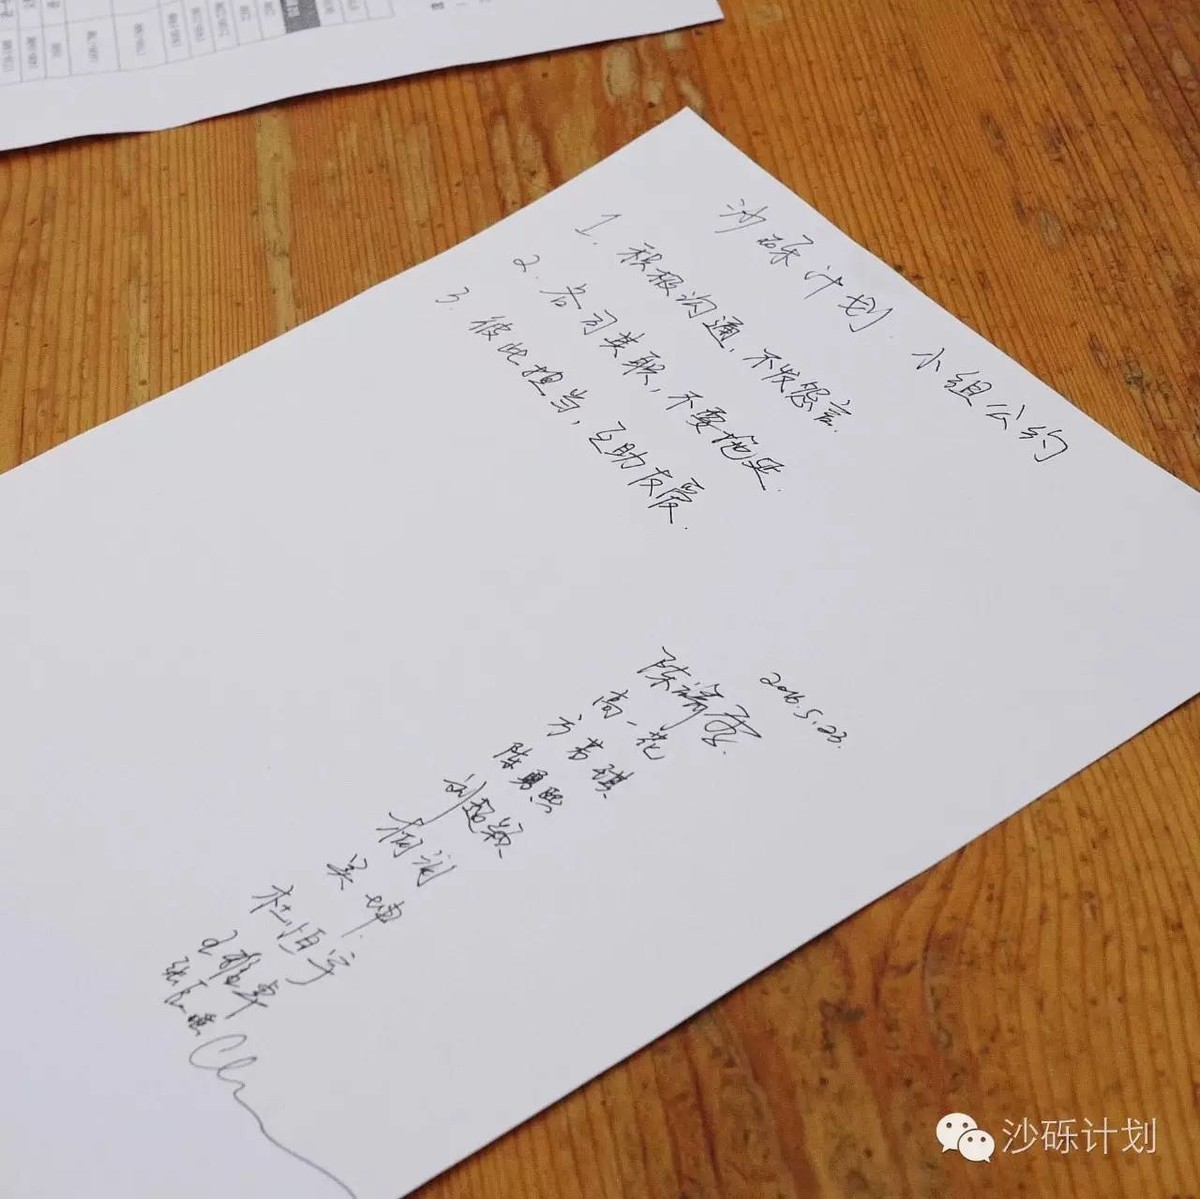 沙砾计划 小组公约
1. 积极沟通, 不发怨言.
2. 各司其职, 不要拖延.
3. 彼此担当, 互助友爱.
2016.5.23.
高一花
方若琪
陈勇熙
刘超颖
吴坤.
杜恒宇
沙砾计划